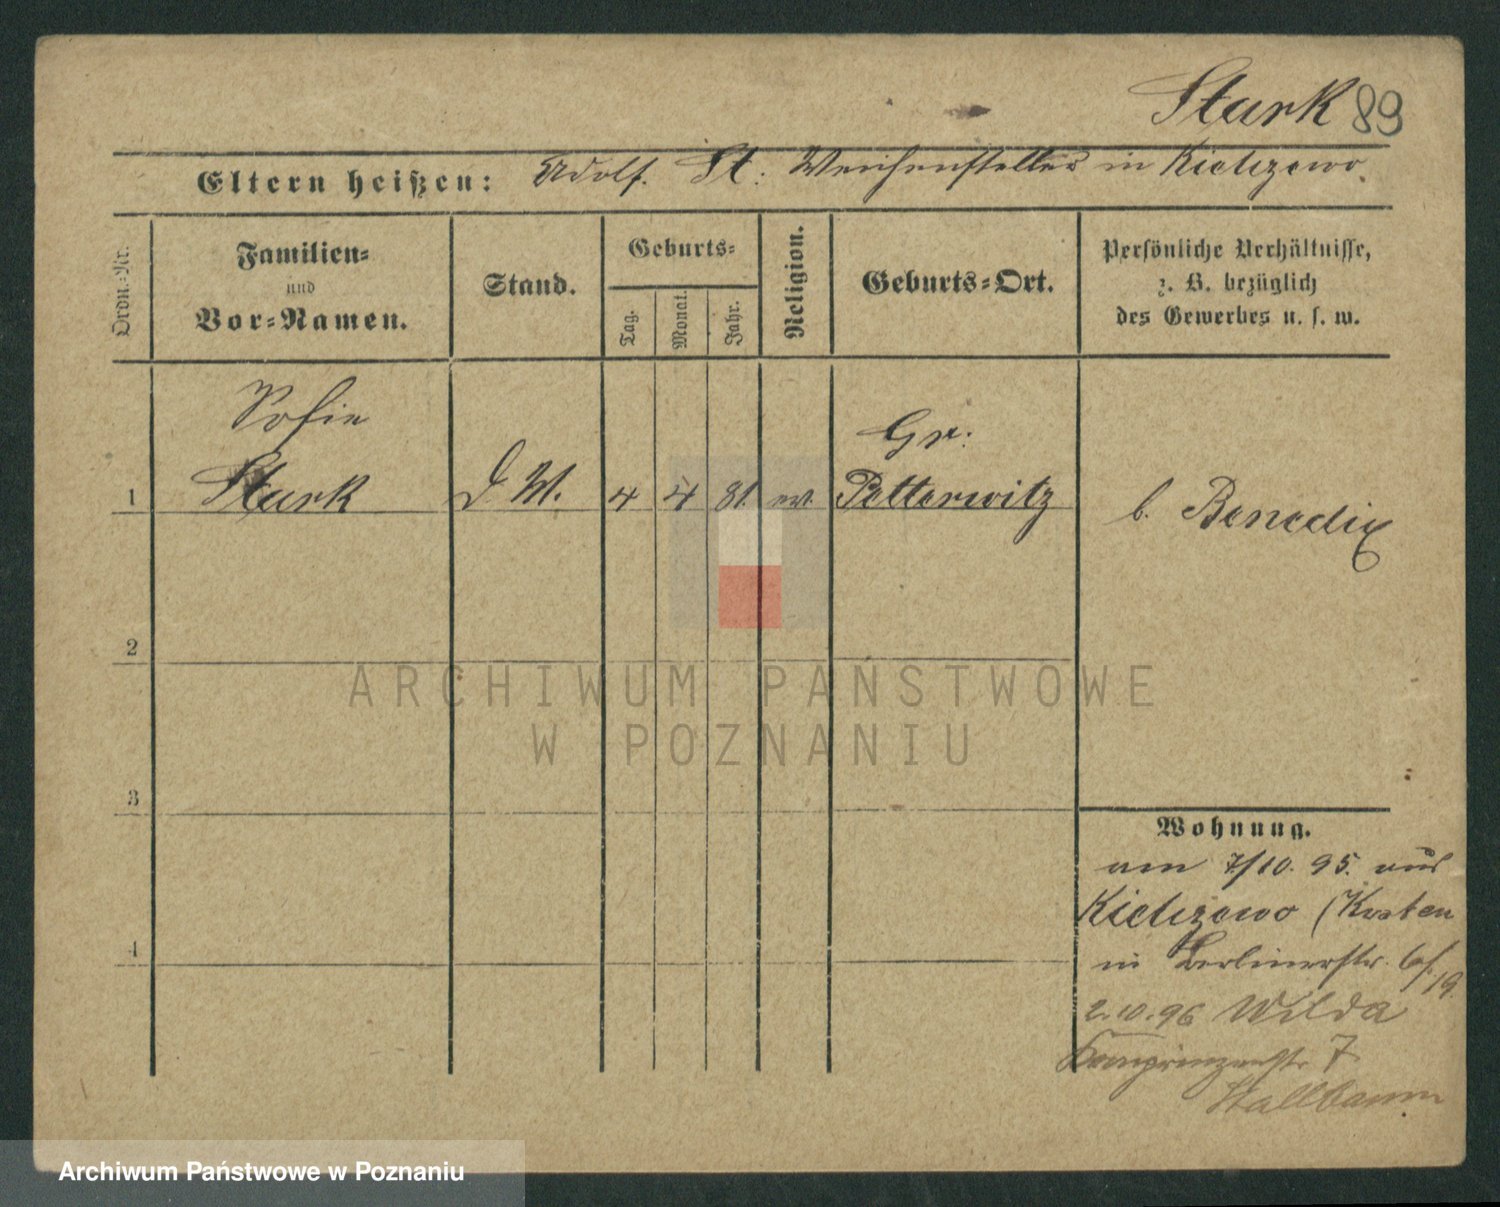 Stark 89
Eltern heißen: Adolf St: Weichensteller in Kielczewo.
Ordn.-Nr.
Familien-
und
Vor-Namen.
Stand.
Geburts-
Tag.
Monat.
Jahr.
Religion.
Geburts-Ort.
Persönliche Verhältnisse,
z. B. bezüglich
des Gewerbes u. s. w.
Sofie
Stark
1
D. M.
4
4
81.
ev.
Gr:
Petterwitz
b. Benedix
2
3
4
Wohnung.
am 7/10. 95. aus
Kielczewo (Kosten
in Berlinerstr.
19.
2.10.96 Wilda
Kronprinzenstr 7
Stallbaum
ARCHIWUM PAŃSTWOWE
W POZNANIU
Archiwum Państwowe w Poznaniu